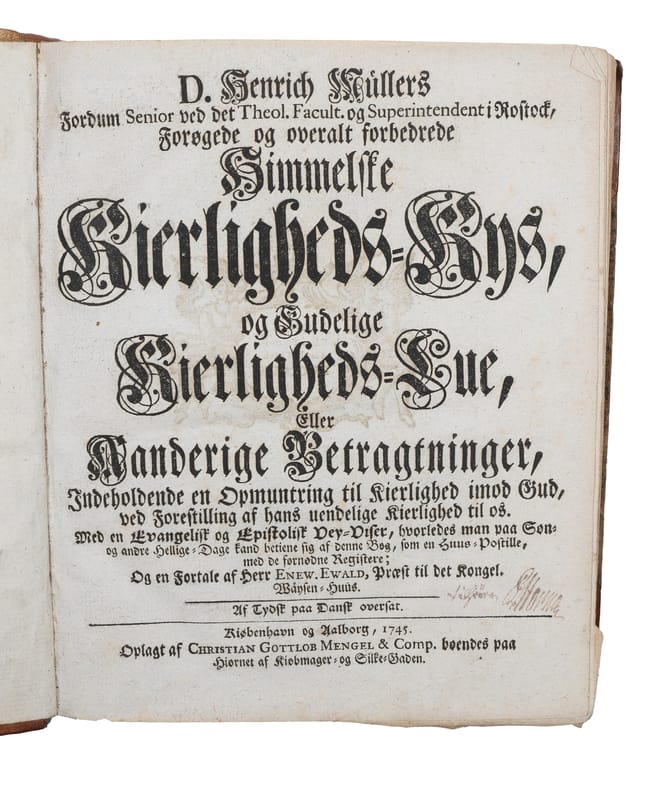 D. Henrich Müllers
Fordum Senior ved det Theol. Facult. og Superintendent i Rostock,
Forøgede og overalt forbedrede
Himmelske
Kierligheds-Kys,
og Gudelige
Kierligheds-Lue,
Eller
Aanderige Betragtninger,
Indeholdende en Opmuntring til Kierlighed imod Gud,
ved Forestilling af hans uendelige Kierlighed til os.
Med en Evangelisk og Epistolisk Vey-Viser, hvorledes man paa Søn-
og andre Hellige-Dage kand betiene sig af denne Bog, som en Huus-Postille,
med de fornødne Registere;
Og en Fortale af Herr ENEW. EWALD, Præst til det Kongel.
Wäysen-Huus.
Af Tydsk paa Dansk oversat.
Kiøbenhavn og Aalborg, 1745.
Oplagt af CHRISTIAN GOTTLOB MENGEL & Comp. boendes paa
Hiørnet af Kiøbmager- og Silke-Gaden.